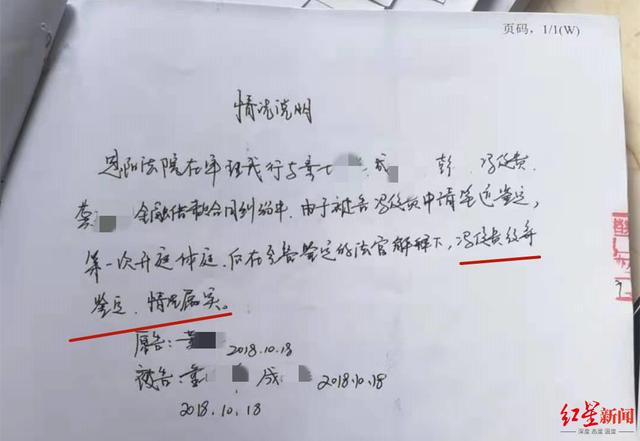 页码，1/1(W)
情况说明
恩阳法院在审理我行与 彭 冯俊贵
龚 金融借款合同纠纷中，由于被告冯俊贵申请笔迹鉴定，
第一次开庭休庭，后在 鉴定的法官解释下，冯俊贵放弃
鉴定，情况属实。
原告： 2018.10.18
被告： 成 2018.10.18
2018.10.18
红星新闻
深度 态度 温度